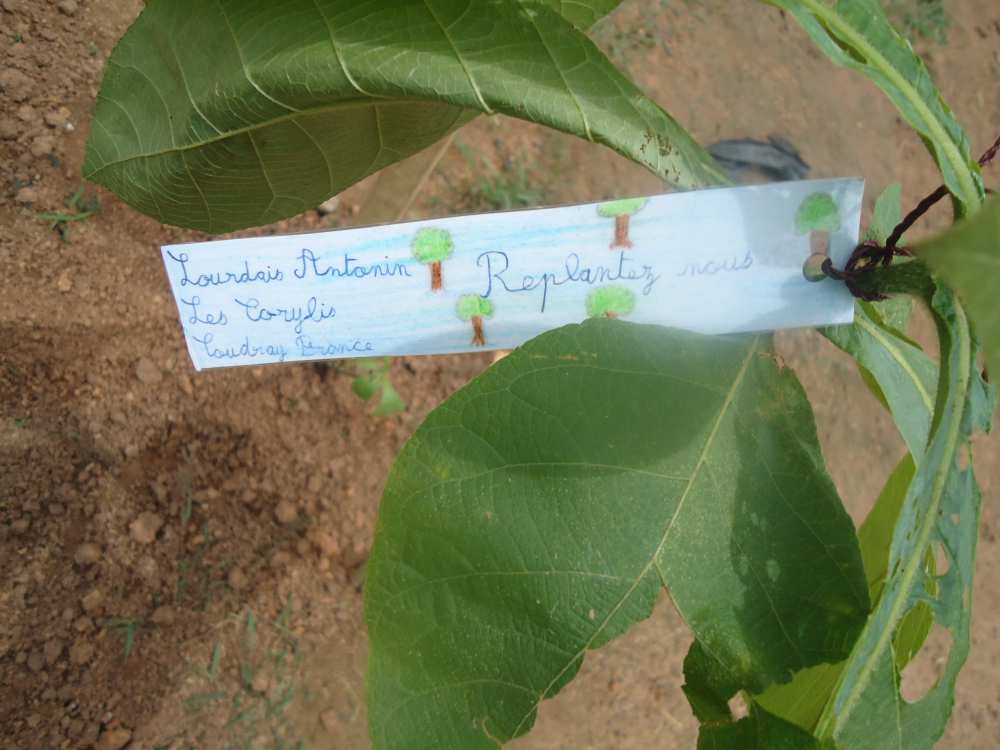 Lourdais Antonin
Les Corylis
Coudray France
Replantez nous